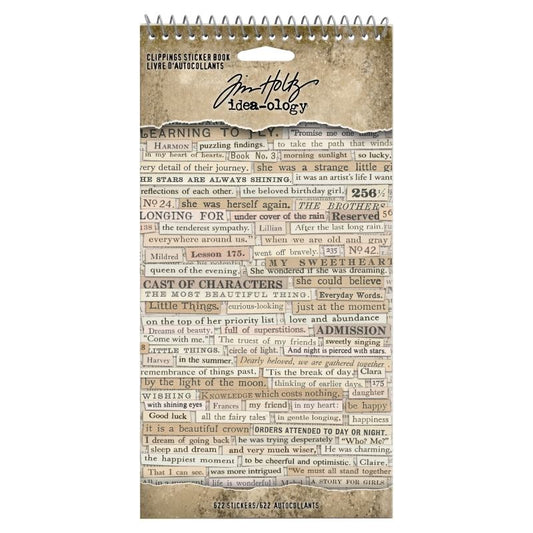 CLIPPINGS STICKER BOOK
LIVRE D'AUTOCOLLANTS
Tim Holtz
idea-ology
LEARNING TO FLY. "Promise me one thing,
HARMON puzzling findings. to take the path that winds
in my heart of hearts. Book No. 3, morning sunlight so lucky,
very detail of their journey. she was a strange little gi
HE STARS ARE ALWAYS SHINING. it was an artist's life I want
reflections of each other. the beloved birthday girl, 256½
No 24. she was herself again. THE BROTHERS
LONGING FOR under cover of the rain Reserved 56
the tenderest sympathy. Lillian After the last long rain.
everywhere around us." when we are old and gray
Mildred Lesson 175. went off bravely. 235 No 42.
MY SWEETHEART
queen of the evening. She wondered if she was dreaming.
CAST OF CHARACTERS she could believe
THE MOST BEAUTIFUL THING. Everyday Words.
Little Things. curious-looking just at the moment
on the top of her priority list love and abundance
Dreams of beauty. full of superstitions. ADMISSION
"Come with me." The truest of my friends sweetly singing
8 LITTLE THINGS. circle of light. And night is pierced with stars.
Harvey in the summer. Dearly beloved, we are gathered together
remembrance of things past, 'Tis the break of day. Clara
by the light of the moon. thinking of earlier days. 175
WISHING KNOWLEDGE which costs nothing. daughter
with shining eyes Frances my friend in my heart: be happy
Good luck all the fairy tales in gentle longing. happiness
it is a beautiful crown ORDERS ATTENDED TO DAY OR NIGHT.
I dream of going back he was trying desperately "Who? Me?"
sleep and dream and very much wiser, He was charming,
the happiest moment to be cheerful and optimistic. Claire,
That I can see. was more intrigued "We must all stand together
all in a moment life is M A STORY FOR GIRLS
622 STICKERS/622 AUTOCOLLANTS